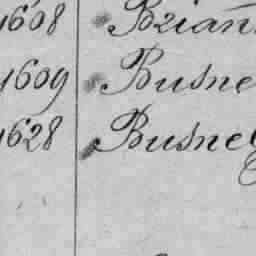 1608 Brian
1609 Busne
1628 Busne